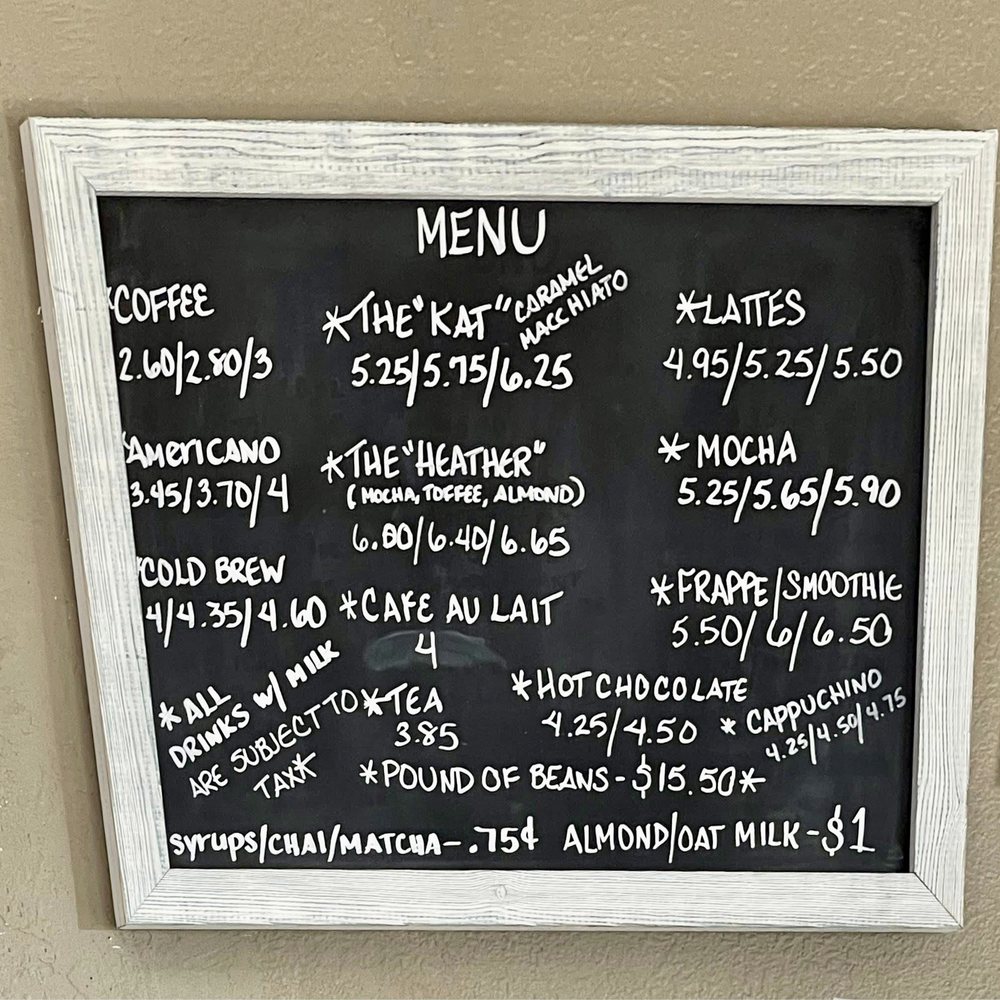 MENU
*COFFEE
2.60/2.80/3
*AMERICANO
3.45/3.70/4
*COLD BREW
4/4.35/4.60
*ALL
DRINKS W/ MILK
ARE SUBJECT TO
TAX*
*THE "KAT" CARAMEL
MACCHIATO
5.25/5.75/6.25
*THE "HEATHER"
(MOCHA, TOFFEE, ALMOND)
6.00/6.40/6.65
*CAFE AU LAIT
4
*TEA
3.85
*LATTES
4.95/5.25/5.50
*MOCHA
5.25/5.65/5.90
*FRAPPE/SMOOTHIE
5.50/6/6.50
*HOT CHOCOLATE
4.25/4.50
*CAPPUCHINO
4.25/4.50/4.75
*POUND OF BEANS-$15.50*
SYRUPS/CHAI/MATCHA-.75¢ ALMOND/OAT MILK-$1